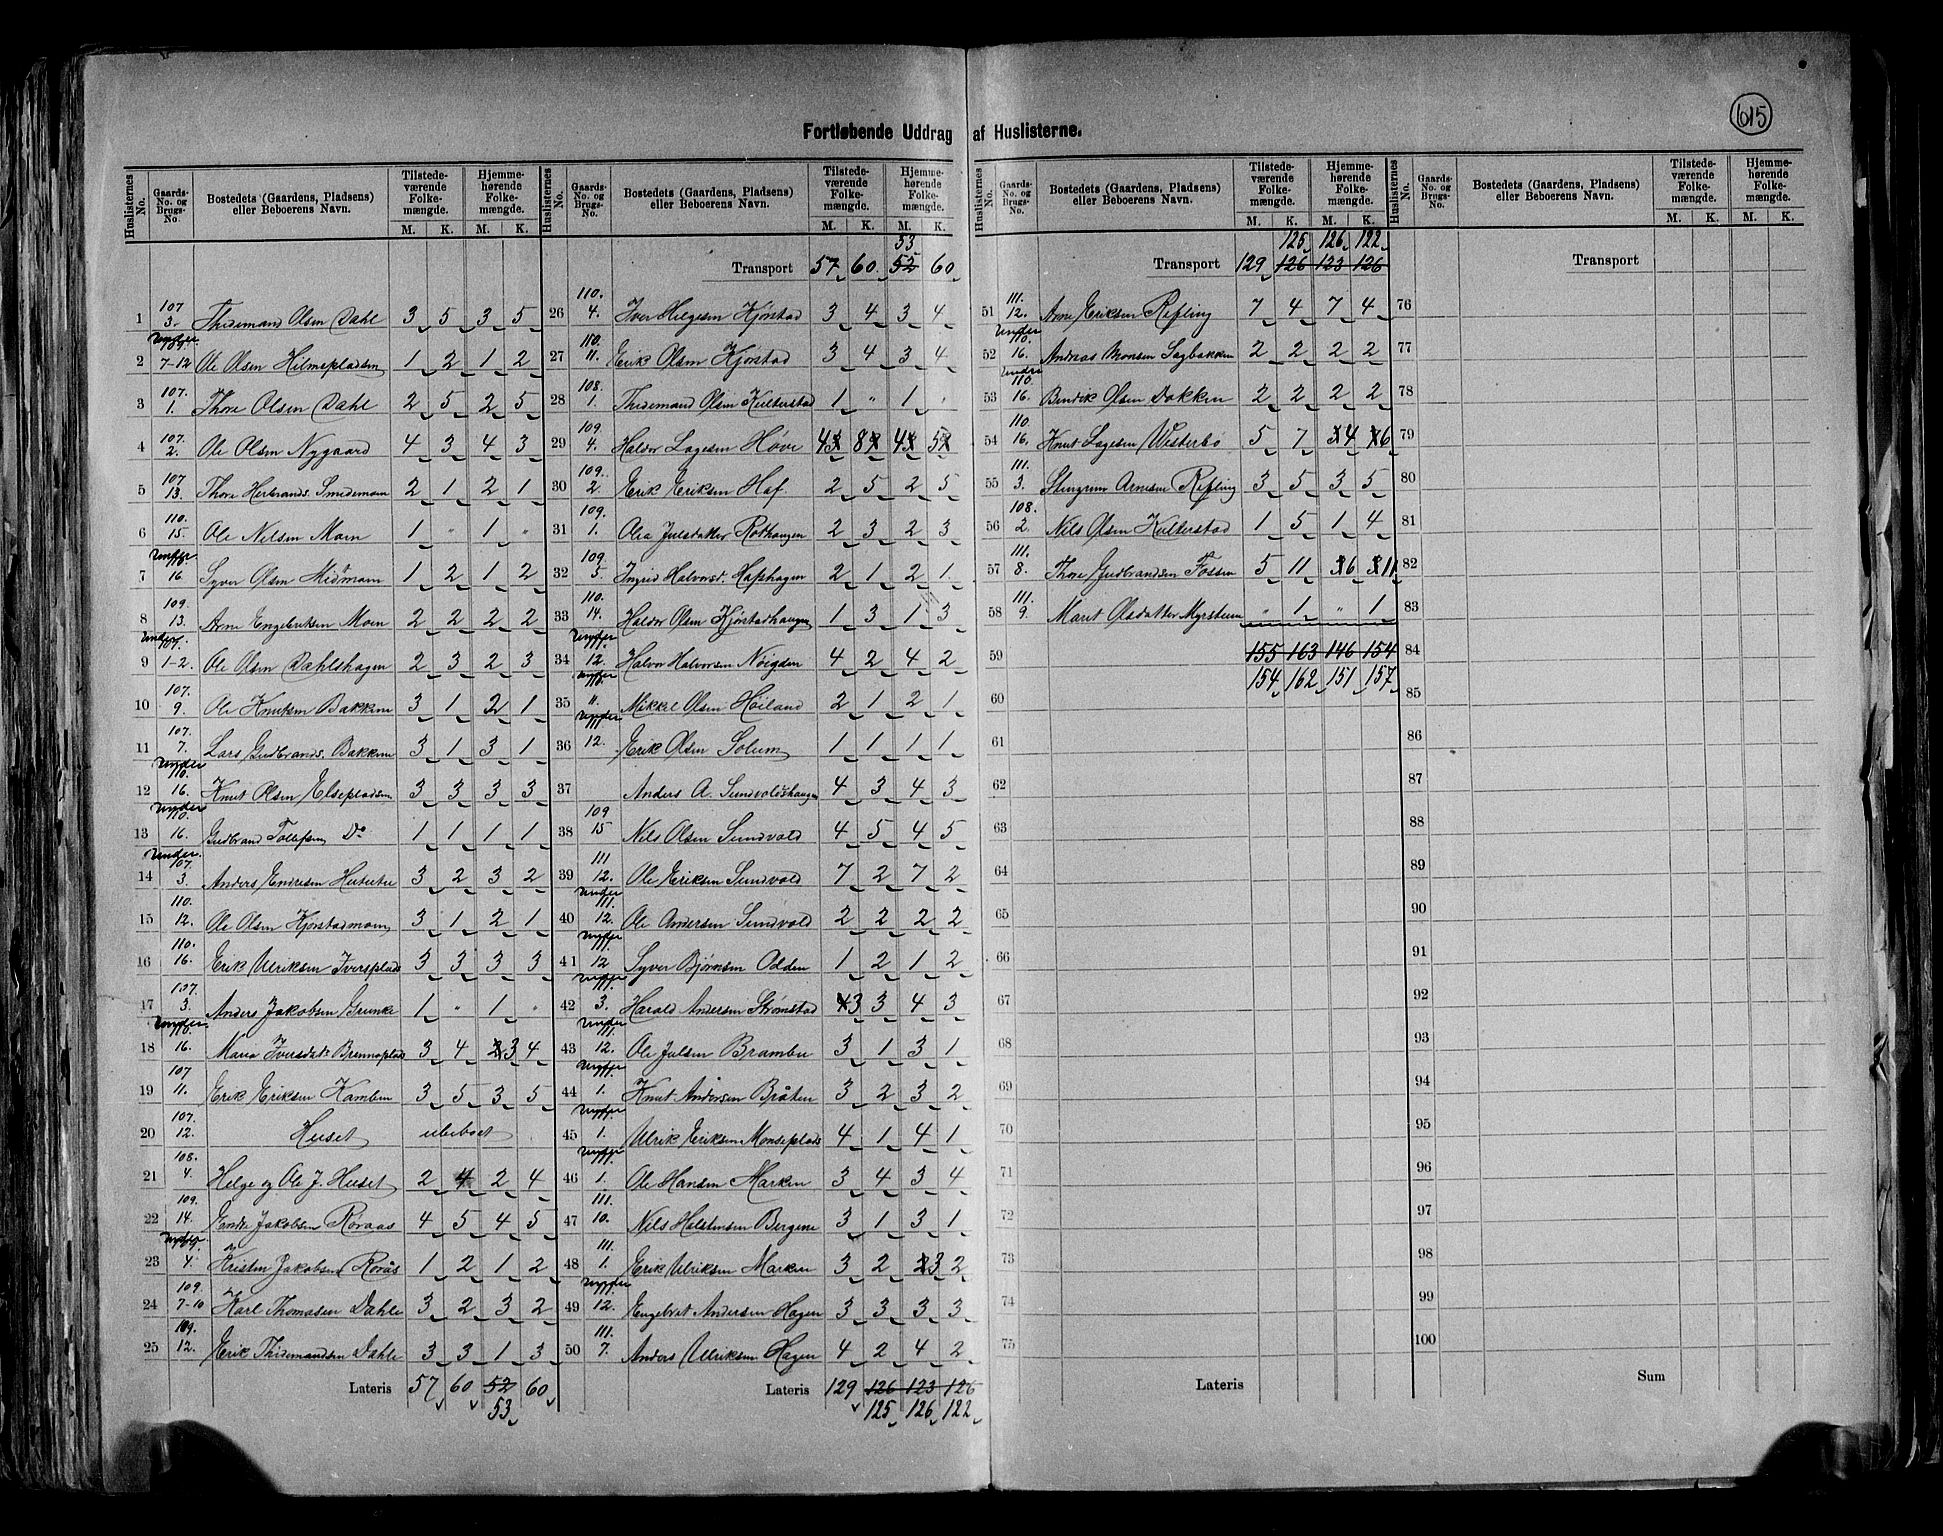 615
Fortløbende Uddrag af Huslisterne.
Huslisternes No. Gaards-No. og Brugs-No. Bostedets (Gaardens, Pladsens) eller Beboerens Navn. Tilstede-værende Folke-mængde. M. K. Hjemme-hørende Folke-mængde. M. K.
1 107 3. Thidemand Olsen Dahl 3 5 3 5
2 Under 107. 7-12 Ole Olsen Hilmepladsen 1 2 1 2
3 107. 1. Thore Olsen Dahl 2 5 2 5
4 107. 2. Ole Olsen Nygaard 4 3 4 3
5 107 13. Thore Herbrands. Smedemoen 2 1 2 1
6 110. 15. Ole Nilsen Moen 1 " 1 "
7 Under 110. 16 Syver Olsen Midmoen 1 2 1 2
8 109. 13. Arne Engebretsen Moen 2 2 2 2
9 Under 107. 1-2. Ole Olsen Dahlshagen 2 3 2 3
10 107. 9. Ole Knutsen Bakkene 3 1 2 1
11 107. 7. Lars Gudbrands. Bakkene 3 1 3 1
12 Under 110. 16. Knut Olsen Elsepladsen 3 3 3 3
13 Under 110. 16. Gudbrand Tollefsen Do 1 1 1 1
14 Under 107. 3. Anders Endresen 3 2 3 2
15 110. 12. Ole Olsen Kjørstadmoen 3 1 2 1
16 110. 16. Erik Ulriksen Iversplads 3 3 3 3
17 107. 3. Anders Jakobsen 1 " 1 "
18 Under 110. 16. Maria Iversdatr Brennaplads 3 4 3 4
19 107 11. Erik Eriksen Kamben 3 5 3 5
20 107. 12. Huset ubeboet
21 108. 4. Helge og Ole J. Huset 2 4 2 4
22 109. 14. Endre Jakobsen Røraas 4 5 4 5
23 Under 4. Kristen Jakobsen Rorås 1 2 1 2
24 109. 7-10 Karl Thomasen Dahle 3 2 3 2
25 109. 12. Erik Thidemandsen Dahle 3 3 1 3
Lateris 57 60 52 60
53
Huslisternes No. Gaards-No. og Brugs-No. Bostedets (Gaardens, Pladsens) eller Beboerens Navn. Tilstede-værende Folke-mængde. M. K. Hjemme-hørende Folke-mængde. M. K.
53
Transport 57 60 52 60
26 110. 4. Iver Helgesen Kjørstad 3 4 3 4
27 110. 11. Erik Olsen Kjørstad 3 4 3 4
28 108. 1. Thidemand Olsen Kulterstad 1 " 1 "
29 109. 4. Haldor Lagesen Høve 4 8 4 5
30 109. 2. Erik Eriksen Haf. 2 5 2 5
31 109. 1. Olea Julsdatter Rothaugen 2 3 2 3
32 109. 5. Ingrid Halvorst. Hafshagen 2 1 2 1
33 110. 14. Haldor Olsen Kjørstadhaugen 1 3 1 3
34 Under 111. 12. Halvor Halvorsen Nøigden 4 2 4 2
35 Under 110. 11. Mikkel Olsen Høiland 2 1 2 1
36 Under 111. 12. Erik Olsen Solum 1 1 1 1
37 Anders A. Sundvoldshaugen 4 3 4 3
38 109 15 Nils Olsen Sundvold 4 5 4 5
39 111 12. Ole Eriksen Sundvold 7 2 7 2
40 Under 111. 12. Ole Andersen Sundvold 2 2 2 2
41 Under 111. 12 Syver Bjørnsen Odden 1 2 1 2
42 Under 111. 3. Harald Andersen Strømstad 3 3 4 3
43 Under 111. 12. Ole Julsen Brambu 3 1 3 1
44 Under 111. 1. Knut Andersen Bråten 3 2 3 2
45 Under 111. 1. Ulrik Eriksen Monseplads 4 1 4 1
46 Under 111. 1. Ole Hansen Marken 3 4 3 4
47 111. 10. Nils Halstensen Bergene 3 1 3 1
48 111. 1. Erik Ulriksen Marken 3 2 3 2
49 Under 111. 12. Engebret Andersen Hagen 3 3 3 3
50 111. 7. Anders Ulriksen Hagen 4 2 4 2
Lateris 129 126 123 126
125 126 122
Huslisternes No. Gaards-No. og Brugs-No. Bostedets (Gaardens, Pladsens) eller Beboerens Navn. Tilstede-værende Folke-mængde. M. K. Hjemme-hørende Folke-mængde. M. K.
125 126 122
Transport 129 126 123 126
51 111. 12. Arne Eriksen Refling 7 4 7 4
52 Under 110. 16. Andreas Monsen Sagbakken 2 2 2 2
53 Under 110. 16. Bendik Olsen Dokken 2 2 2 2
54 110. 16. Knut Lagesen Westerbø 5 7 4 6
55 111. 3. Stengrim Arnesen Refling 3 5 3 5
56 108. 2. Nils Olsen Kulterstad 1 5 1 4
57 111. 8. Thore Gudbrandsen Fossen 5 11 6 11
58 111. 9. Marit Olsdatter Myrstuen " 1 " 1
59 155 163 146 154
154 162 151 157
60
61
62
63
64
65
66
67
68
69
70
71
72
73
74
75
Lateris
Huslisternes No. Gaards-No. og Brugs-No. Bostedets (Gaardens, Pladsens) eller Beboerens Navn. Tilstede-værende Folke-mængde. M. K. Hjemme-hørende Folke-mængde. M. K.
Transport
76
77
78
79
80
81
82
83
84
85
86
87
88
89
90
91
92
93
94
95
96
97
98
99
100
Sum